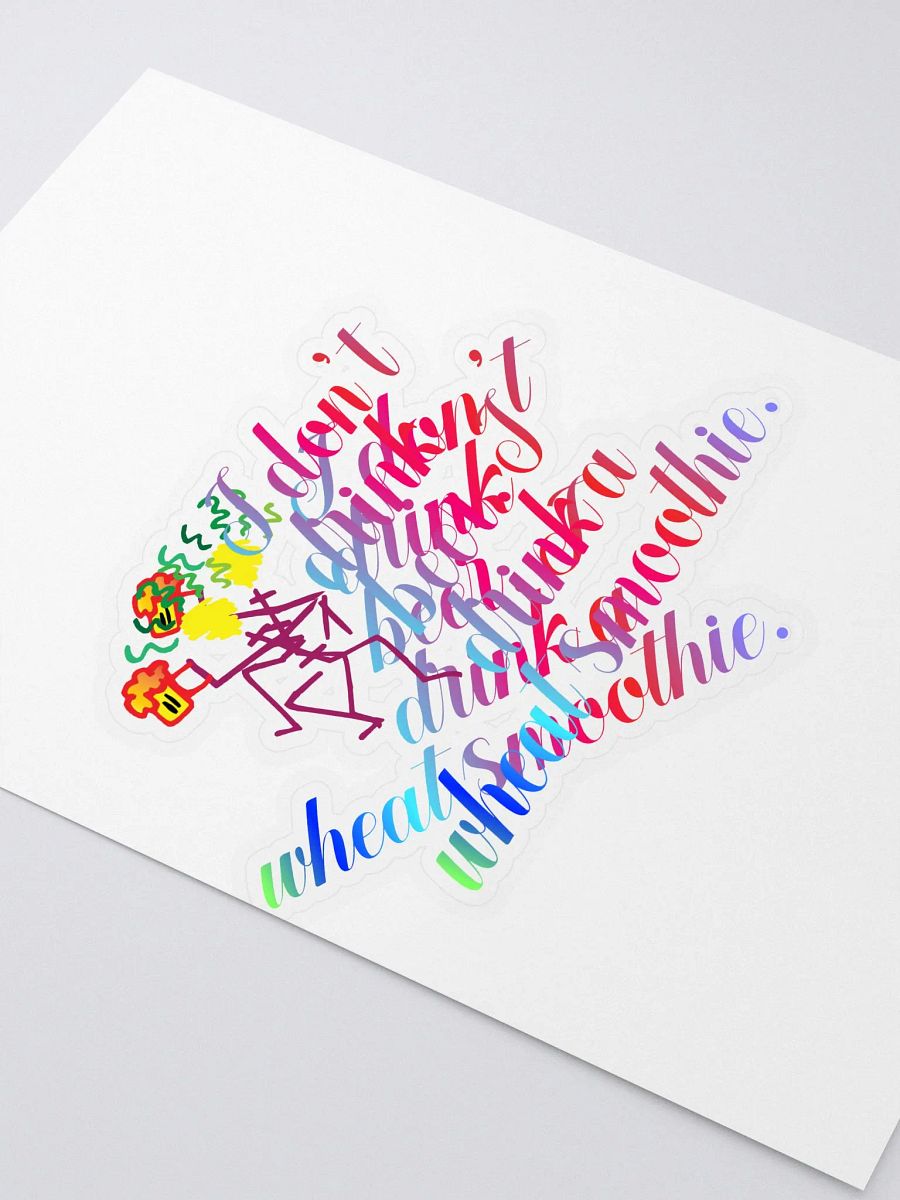 I don't
I don't
drink
drink
drink a
drink a
wheat smoothie.
wheat smoothie.